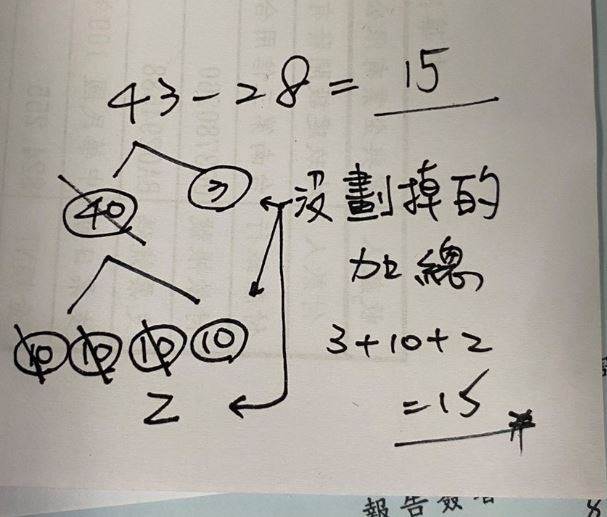 43-28= 15
40 3
沒劃掉的
加總
10 10 10 10
3+10+2
2
=15
報告